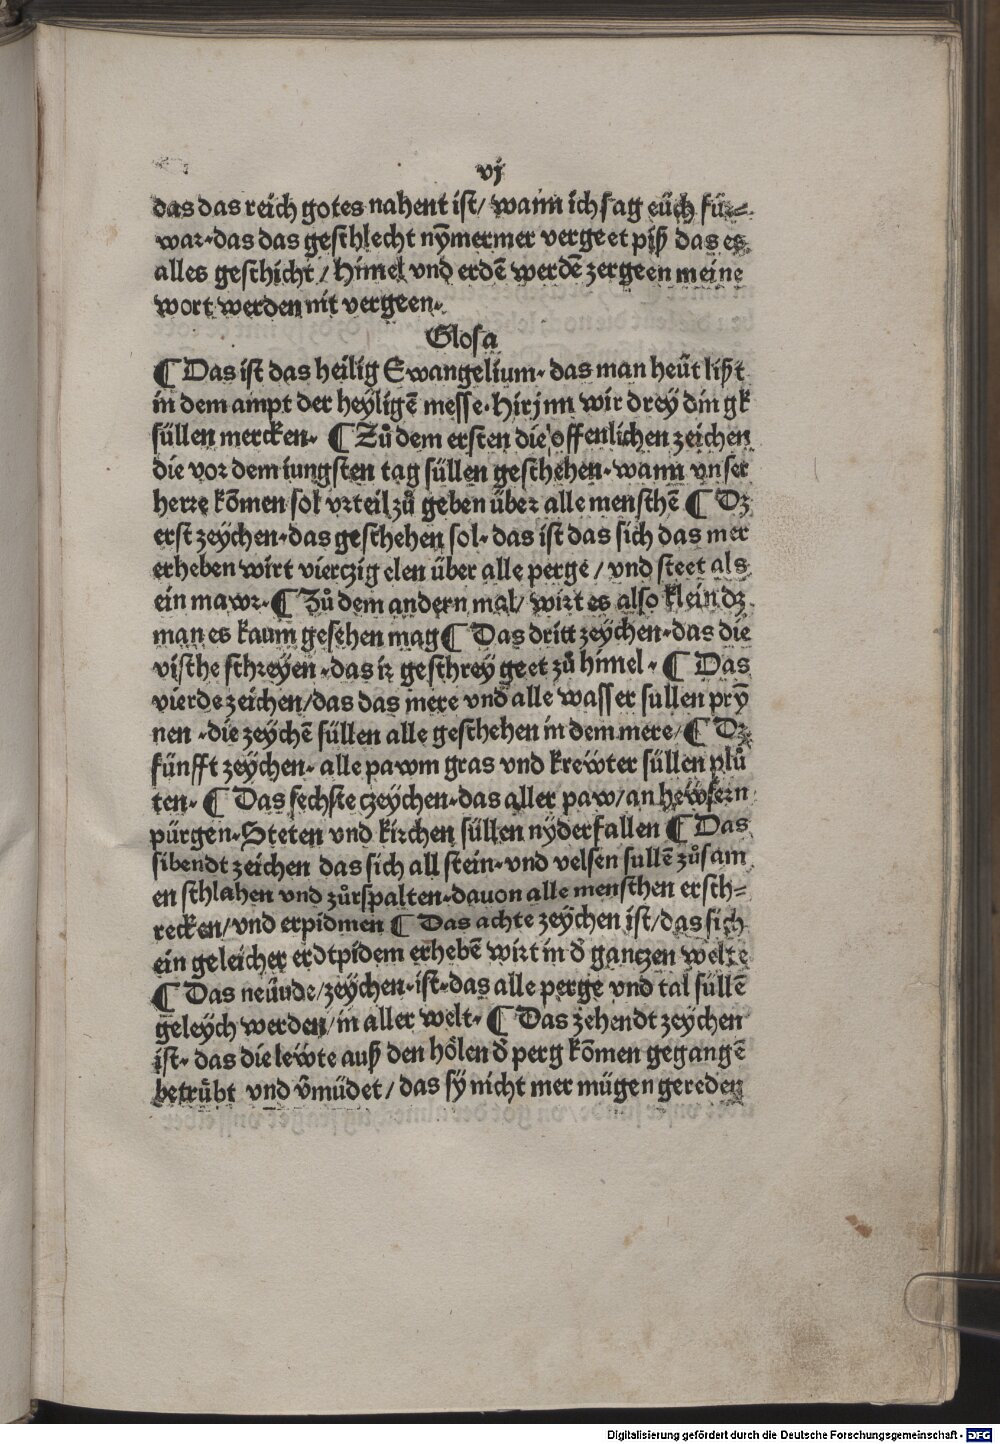 vj
das das reich gotes nahent ist/ wann ich sag eüch für⸗
war· das das geschlecht nȳmermer vergeet piß das es
alles geschicht / Himel vnd erdē werdē zergeen meine
wort werden nit vergeen·
Glosa
¶ Das ist das heilig Ewangelium· das man heüt lißt
in dem ampt der heyligē messe· Hirjnn wir drey dingk
süllen mercken· ¶ Zů dem ersten die offenlichen zeichen
die vor dem iungsten tag süllen geschehen· wann vnser
herre kōmen sol vrteil zů geben über alle menschē ¶ Dz
erst zeychen· das geschehen sol· das ist das sich das mer
erheben wirt vierczig elen über alle perge / vnd steet als
ein mawr· ¶ Zů dem andern mal/ wirt es also klein dz
man es kaum gesehen mag ¶ Das dritt zeychen· das die
vische schreyen· das ir geschrey geet zů himel· ¶ Das
vierde zeichen/ das das mere vnd alle wasser sullen prȳ
nen· die zeychē süllen alle geschehen in dem mere/ ¶ Dz
fünfft zeychen· alle pawm gras vnd krewter süllen plů
ten· ¶ Das sechste czeychen· das aller paw/ an hewsern
pürgen· Steten vnd kirchen süllen nyderfallen ¶ Das
sibendt zeichen das sich all stein· vnd velsen sullē zůsam
en schlahen vnd zůrspalten· dauon alle menschen ersch⸗
recken/ vnd erpidmen ¶ Das achte zeychen ist/ das sich
ein geleicher erdtpidem erhebē wirt in d̄ ganczen welte
¶ Das neünde/ zeychen· ist· das alle perge vnd tal süllē
geleych werden/ in aller welt· ¶ Das zehendt zeychen
ist· das die lewte auß den hölen d̄ perg kōmen gegangē
betrübt vnd v̄müdet/ das sy nicht mer mügen gereden
Digitalisierung gefördert durch die Deutsche Forschungsgemeinschaft - DFG